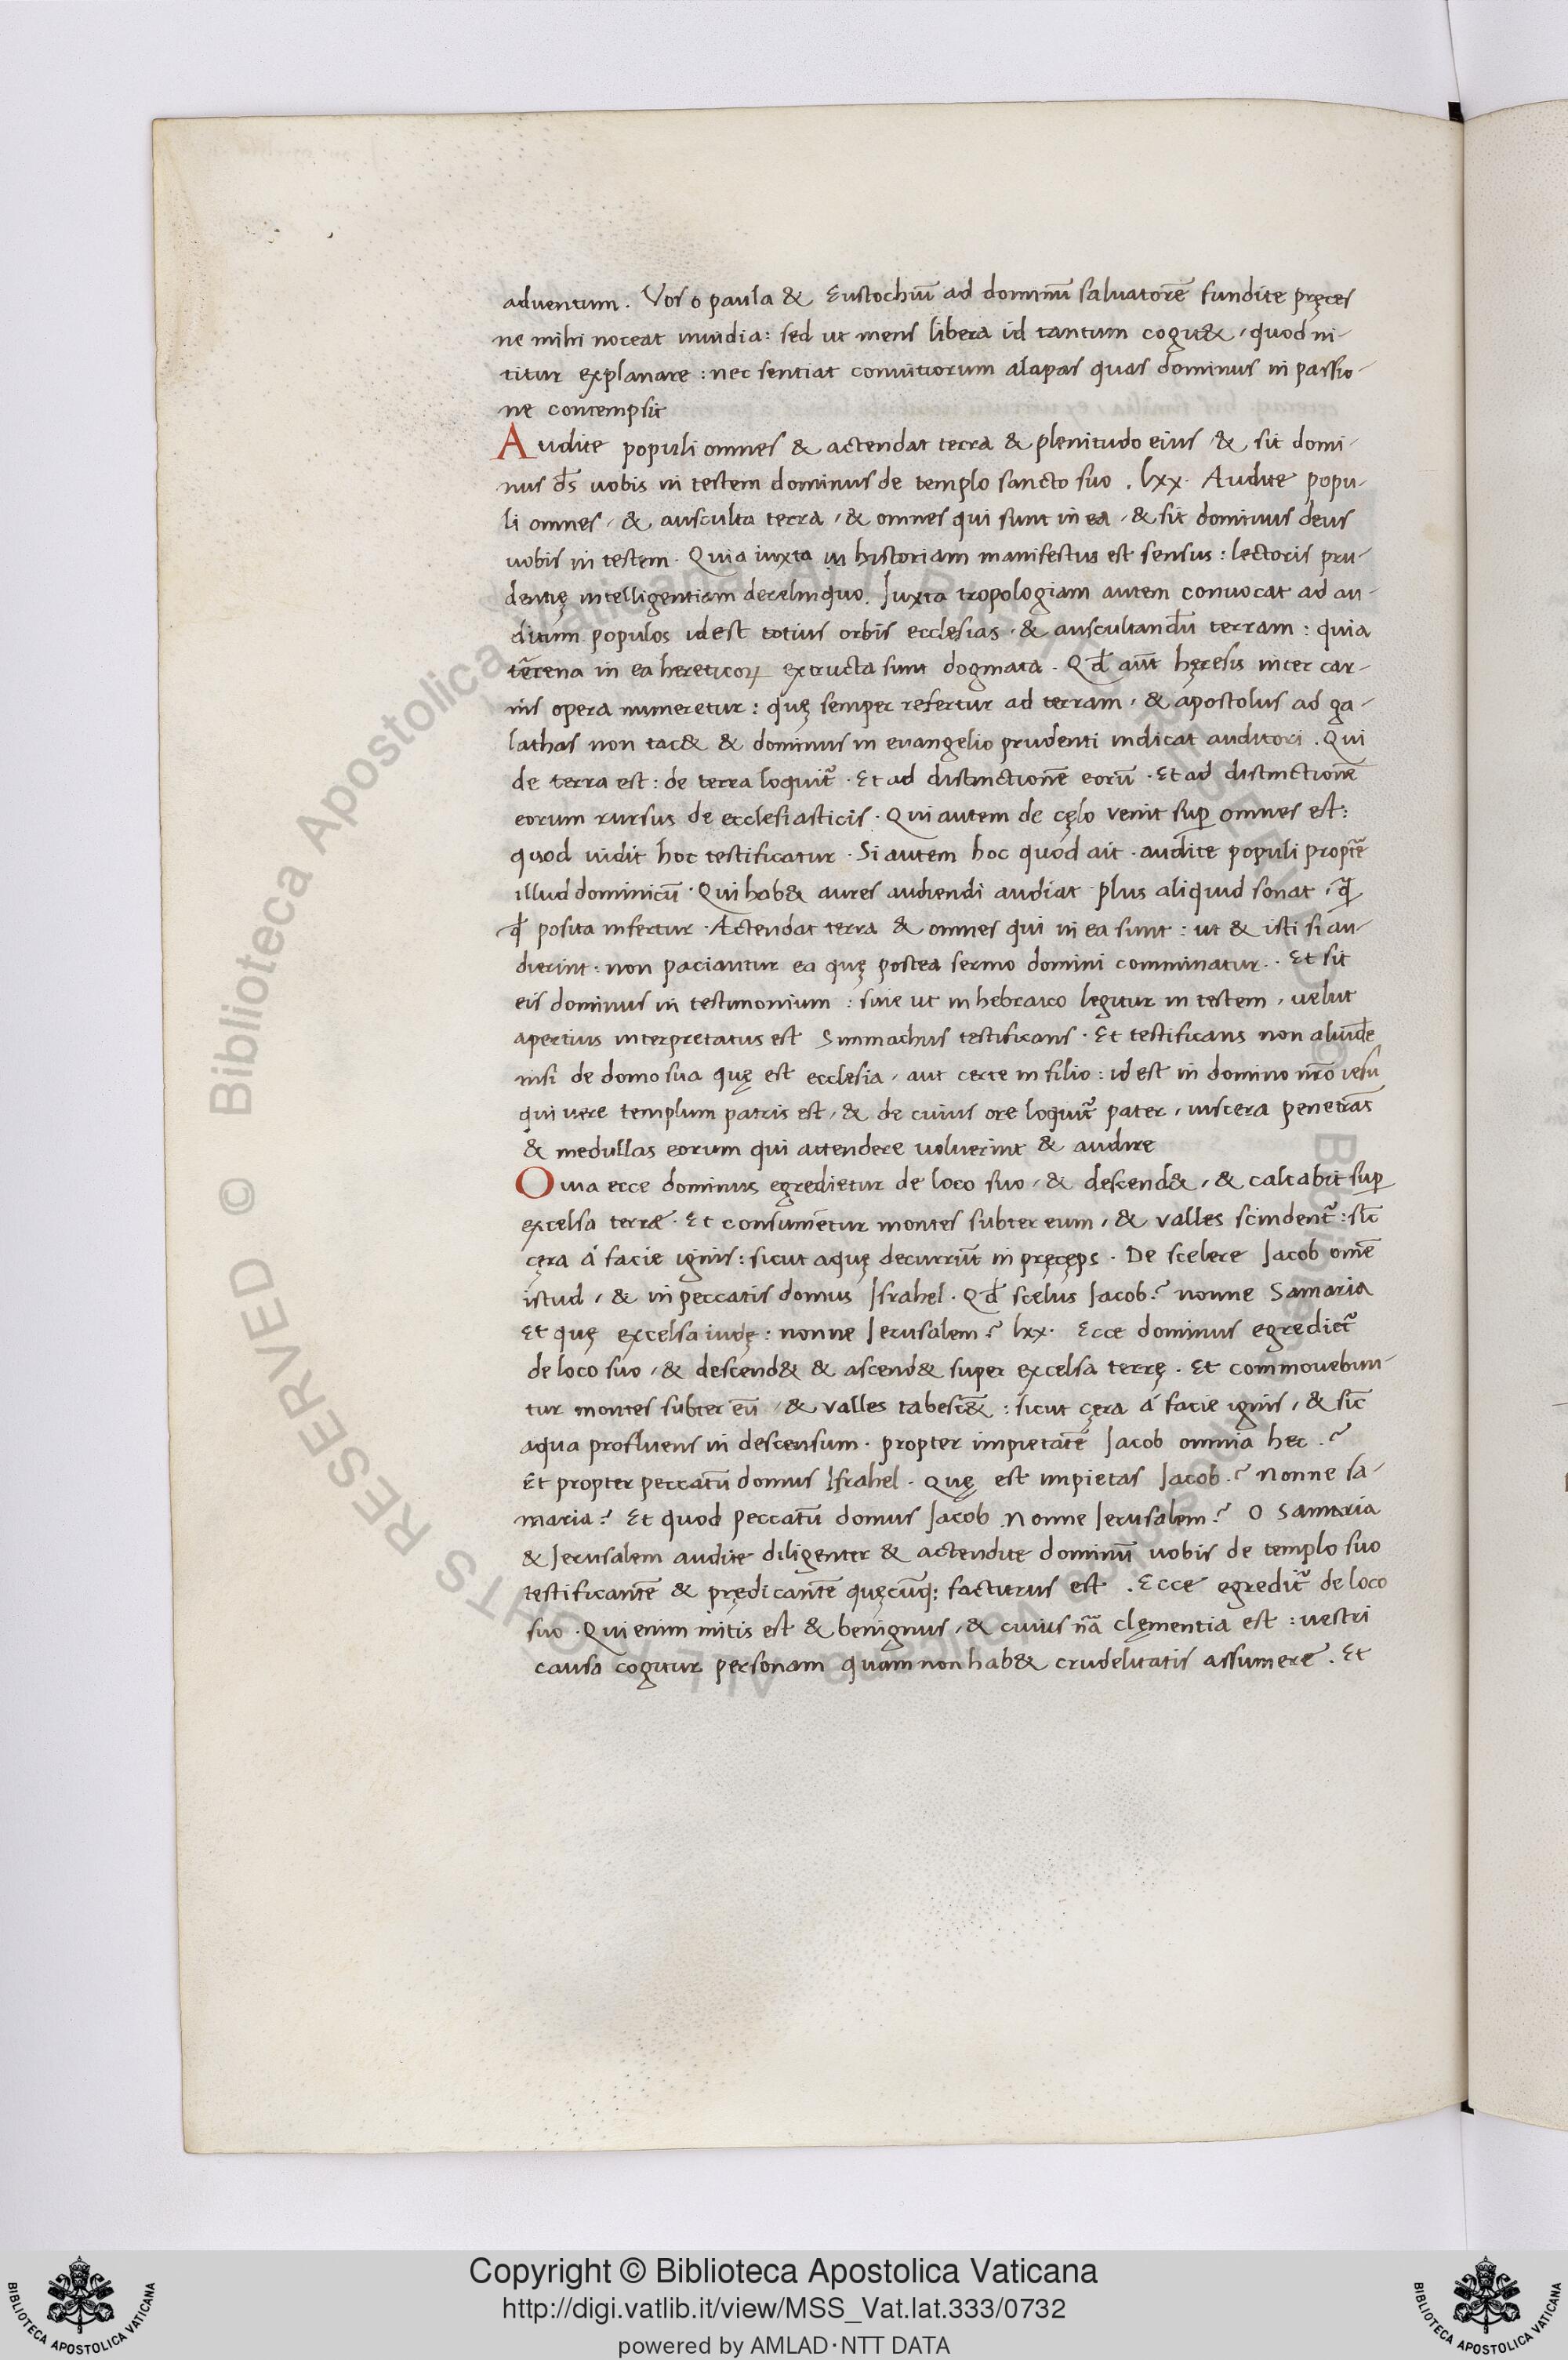 adventum. Vos o paula & Eustochiū ad dominū salvatorē fundite pręces
ne mihi noceat invidia: sed ut mens libera id tantum cogit&, quod ni-
titur explanare: nec sentiat convitiorum alapas quas dominus in passio-
ne contempsit
Audite populi omnes & actendat terra & plenitudo eius & sit domi-
nus d̄s vobis in testem dominus de templo sancto suo. lxx. Audite popu-
li omnes, & ausculta terra, & omnes qui sunt in ea, & sit dominus deus
vobis in testem. Quia iuxta in historiam manifestus est sensus: lectoris pru-
dentię intelligentiam derelinquo. Iuxta tropologiam autem convocat ad au-
ditum populos idest totius orbis ecclesias, & auscultand̄u terram: quia
tērena in ea hereticoꝝ extructa sunt dogmata. Qd̄ aūt hęresis inter car-
nis opera numeretur: quę semper refertur ad terram, & apostolus ad ga-
lathas non tac& & dominus in evangelio prudenti indicat auditori. Qui
de terra est: de terra loquit̃. Et ad distinctionē eorū. Et ad distinctionē
eorum rursus de ecclesiasticis. Qui autem de cęlo venit sup̱ omnes est:
quod vidit hoc testificatur. Si autem hoc quod ait. audite populi propt̄e
illud dominicū. Qui hab& aures audiendi audiat plus aliquid sonat, q̄
q̄ posita infertur. Actendat terra & omnes qui in ea sunt: ut & isti si au-
dierint: non paciantur ea quę postea sermo domini comminatur. Et sit
eis dominus in testimonium: sive ut in hebraico legitur in testem, velut
apertius interpretatus est Simmachus testificans. Et testificans non aliund̄e
nisi de domo sua quę est ecclesia, aut certe in filio: id est in domino nr̄o iesu
qui vere templum patris est, & de cuius ore loquit̃ pater, viscera penetrās
& medullas eorum qui attendere voluerint & audire
Quia ecce dominus egredietur de loco suo, & descend&, & calcabit sup̱
excelsa terræ. Et consumentur montes subter eum, & valles scindent̃: sic̄
cęra á facie ignis: sicut aquę decurrūt in pręcęps. De scelere Jacob omē
istud, & in peccatis domus Israhel. Qd̄ scelus Jacob? nonne Samaria
Et quę excelsa iudę: nonne Jerusalem? lxx. Ecce dominus egrediet̃
de loco suo, & descend& & ascend& super excelsa terrę. Et commovebun-
tur montes subter eū, & valles tabesc̄&: sicut cęra á facie ignis, & sic̄
aqua profluens in descensum. propter impietatē Jacob omnia hec.?
Et propter peccatū domus Israhel. Quę est impietas Jacob? Nonne sa-
maria? Et quod peccatū domus Jacob. Nonne Jerusalem? O Samaria
& Jerusalem audite diligenter & actendite dominū vobis de templo suo
testificantē & prędicantē quęcūq: facturus est. Ecce egredit̃ de loco
suo. Qui enim mitis est & benignus, & cuius nā clęmentia est: vestri
causa cogitur personam quam non hab& crudelitatis assumere. Et
Copyright © Biblioteca Apostolica Vaticana
http://digi.vatlib.it/view/MSS_Vat.lat.333/0732
powered by AMLAD·NTT DATA